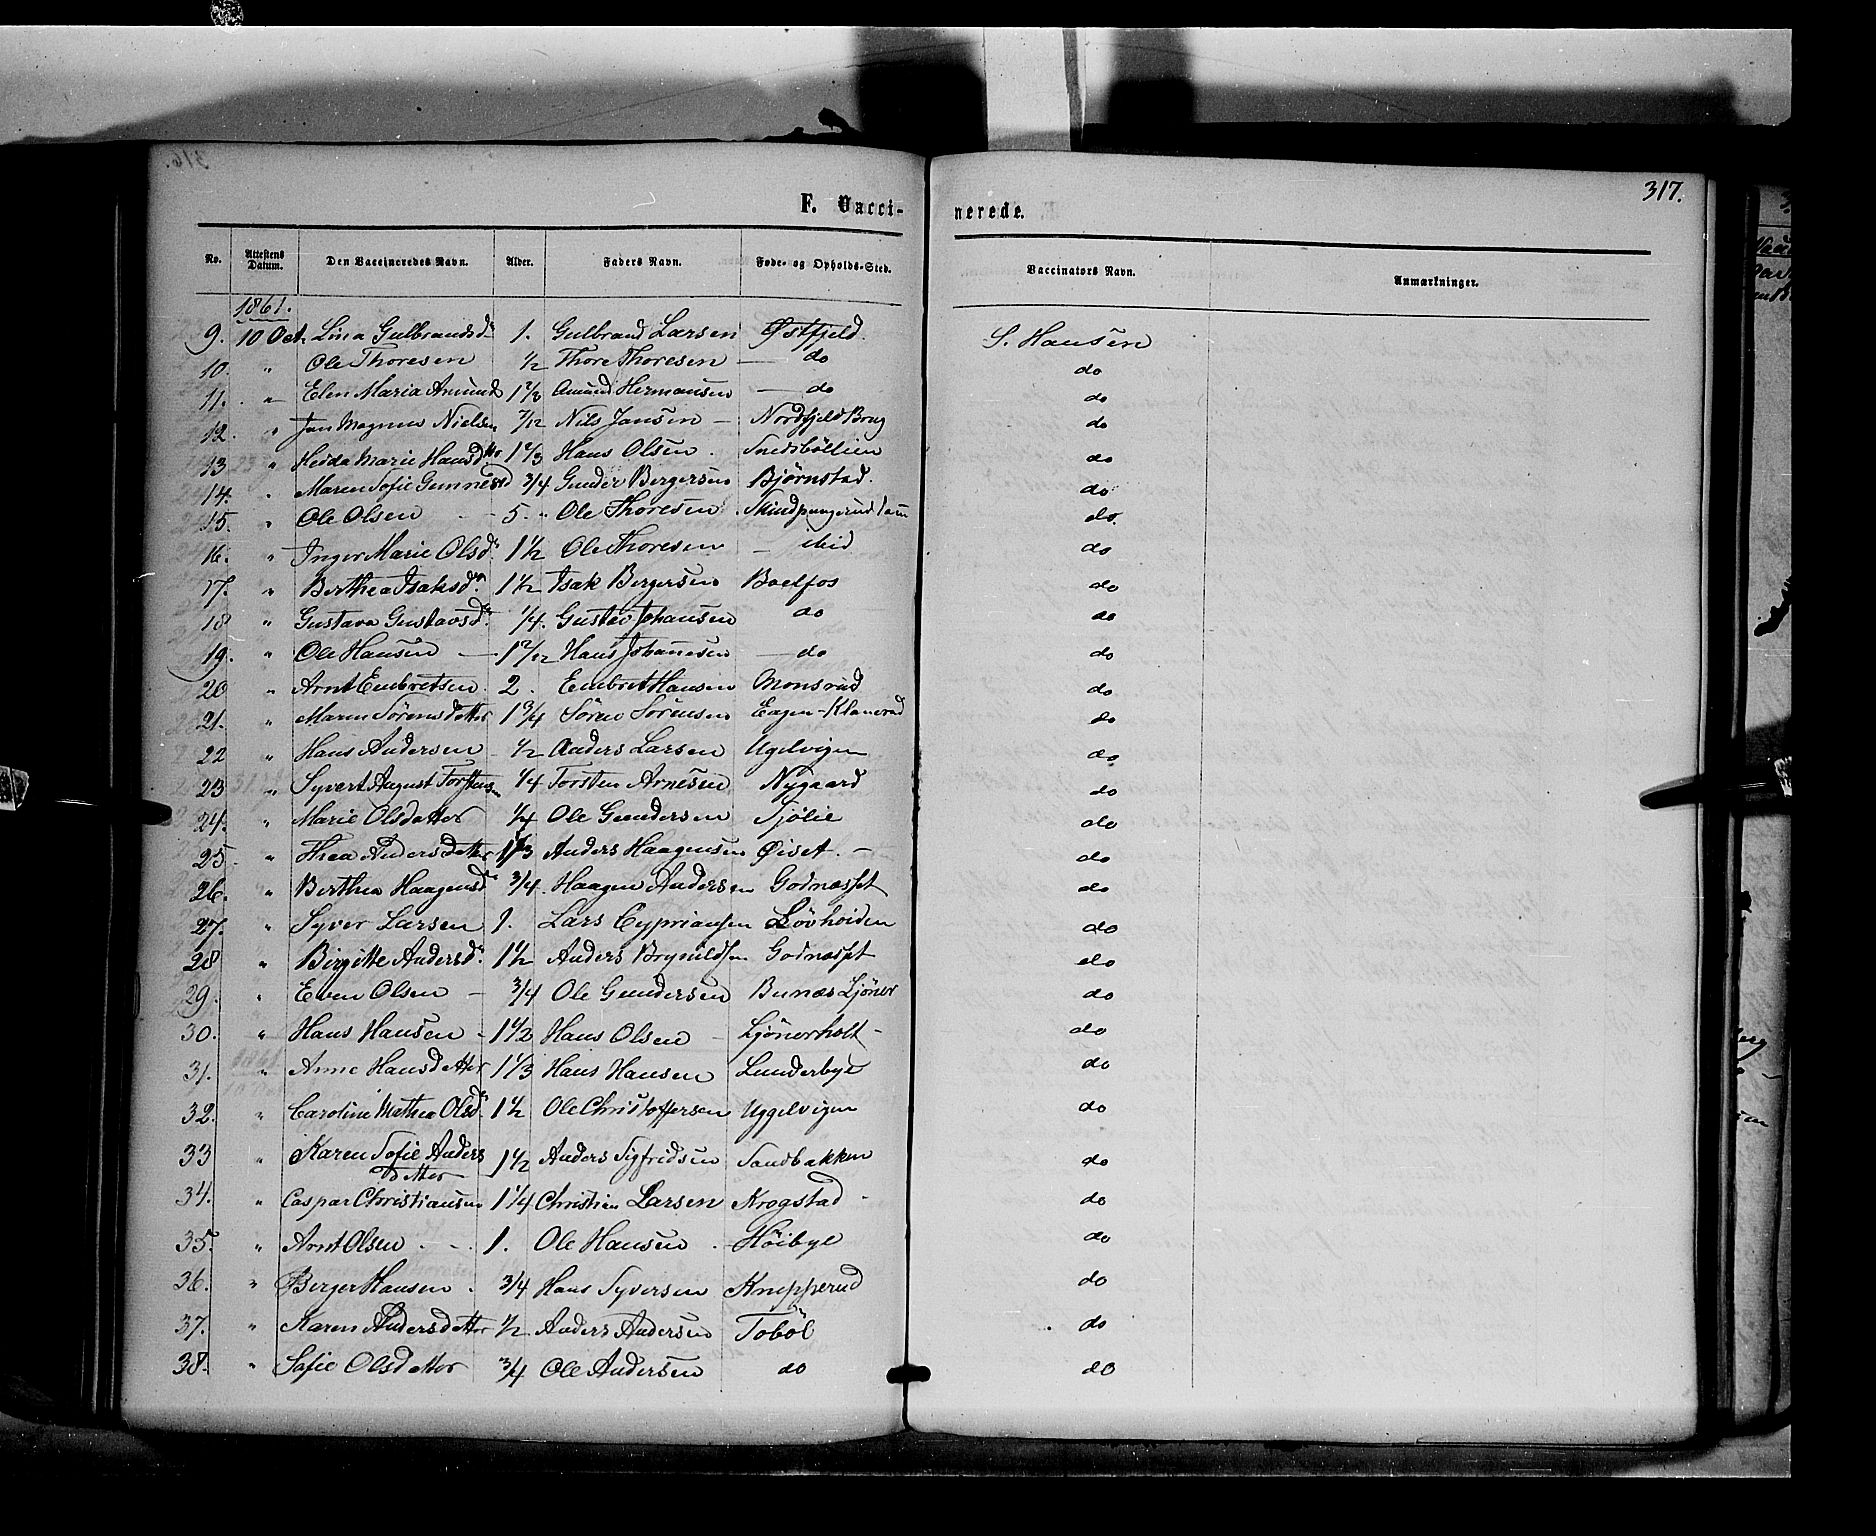 317.
F. Vacci-
nerede.
No. Attestens Datum. Den Vaccineredes Navn. Alder. Faders Navn. Føde- og Opholds-Sted. Vaccinators Navn. Anmærkninger.
1861.
9. 10 Oct. Lina Gulbrandsd. 1. Gulbrand Larsen Østfjeld. S. Hansen
10. " Ole Thoresen 1/2 Thore Thoresen — do do
11. " Elen Maria Amunds Amund Hermansen — do do
12. " Jan Magnus Nielsen 7/12 Nils Jansen — Nordfjeld Brug do
13 " Hedda Marie Hansdtter Hans Olsen . Snedsböllien do
14. " Maren Sofie 3/4 Gunder Bergersen Bjørnstad. do
15. " Ole Olsen 5. Ole Thoresen do.
16. " Inger Marie Olsd. 1 1/2 Ole Thoresen — ibid do
17. " Berthea Isaksd. 1 1/2 Isak Bergersen Boelfos do
18 " Gustava Gustavsd. 1/4. Gustav Johansen do do
19. " Ole Hansen — Hans Johannesen — do do
20 " Arnt Embretsen. 2. Embret Hansen Monsrud do
21. " Maren Sörensdatter 1 3/4 Sören Sörensen do
22 " Hans Andersen 1/2 Anders Larsen Ugelvigen do
23 " Syvert August Torstens. 1/4 Torsten Arnesen Nygaard do
24. " Marie Olsdatter 1/4 Ole Gundersen Sjölie do
25 " Thea Andersdatter 1 1/3 Anders Haagensen Øiset. — do
26. " Berthea Haagensd. 3/4. Haagen Andersen Godnæsset do
27. " Syver Larsen 1. Lars Cypriansen Lövhoiden do
28 " Birgitte Andersd. 1 1/2 Anders Brynildsen Godnæsset do
29. " Even Olsen — 3/4 Ole Gundersen Bunæs Ljöner do
30. " Hans Hansen - 1 1/2 Hans Olsen — Ljönerholt — do
31. " Anne Hansdatter 1 1/3 Hans Hansen Lunderbye do
32. " Caroline Mathea Olsd. 1 1/2 Ole Christoffersen Uggelvigen do
33 " Karen Sofie Anders 1 1/2 Anders Sigfridsen Sandbakken do
datter
34. " Caspar Christiansen 1 1/4 Christian Larsen Krogstad - do
35. " Arnt Olsen . - . 1. Ole Hansen . Höibye do
36. " Berger Hansen . 3/4 Hans Syversen Knepperud do
37. " Karen Andersdatter 1/2 Anders Andersen Toböl do
38. " Sofie Olsdatter 3/4 Ole Andersen do do